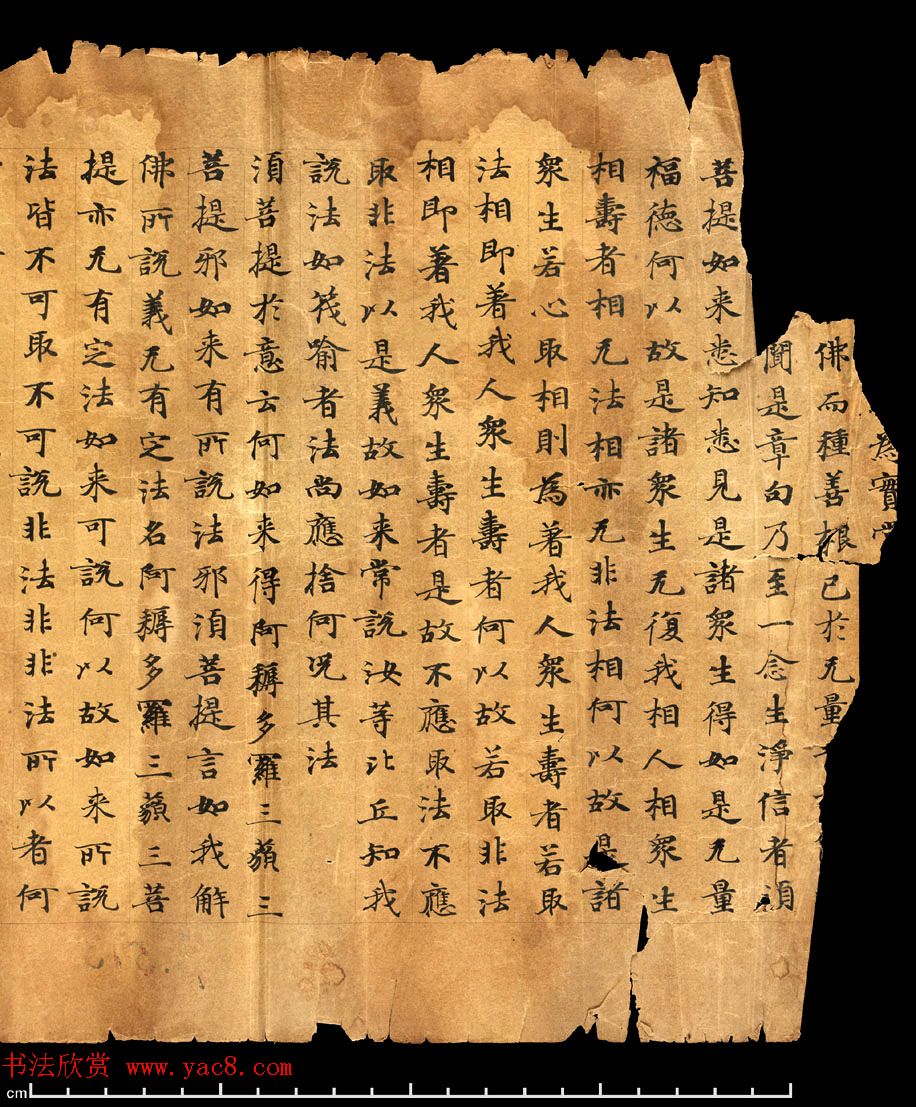 為實當
佛而種善根已於无量
聞是章句乃至一念生淨信者湏
菩提如来悉知悉見是諸衆生得如是无量
福德何以故是諸衆生无復我相人相衆生
相壽者相无法相亦无非法相何以故是諸
衆生若心取相則為著我人衆生壽者若取
法相即著我人衆生壽者何以故若取非法
相即著我人衆生壽者是故不應取法不應
取非法以是義故如来常說汝等比丘知我
說法如筏喻者法尚應捨何况其法
湏菩提於意云何如来得阿耨多羅三藐三
菩提邪如来有所說法邪湏菩提言如我解
佛所說義无有定法名阿耨多羅三藐三菩
提亦无有定法如来可說何以故如来所說
法皆不可取不可說非法非非法所以者何
书法欣赏 www.yac8.com
cm